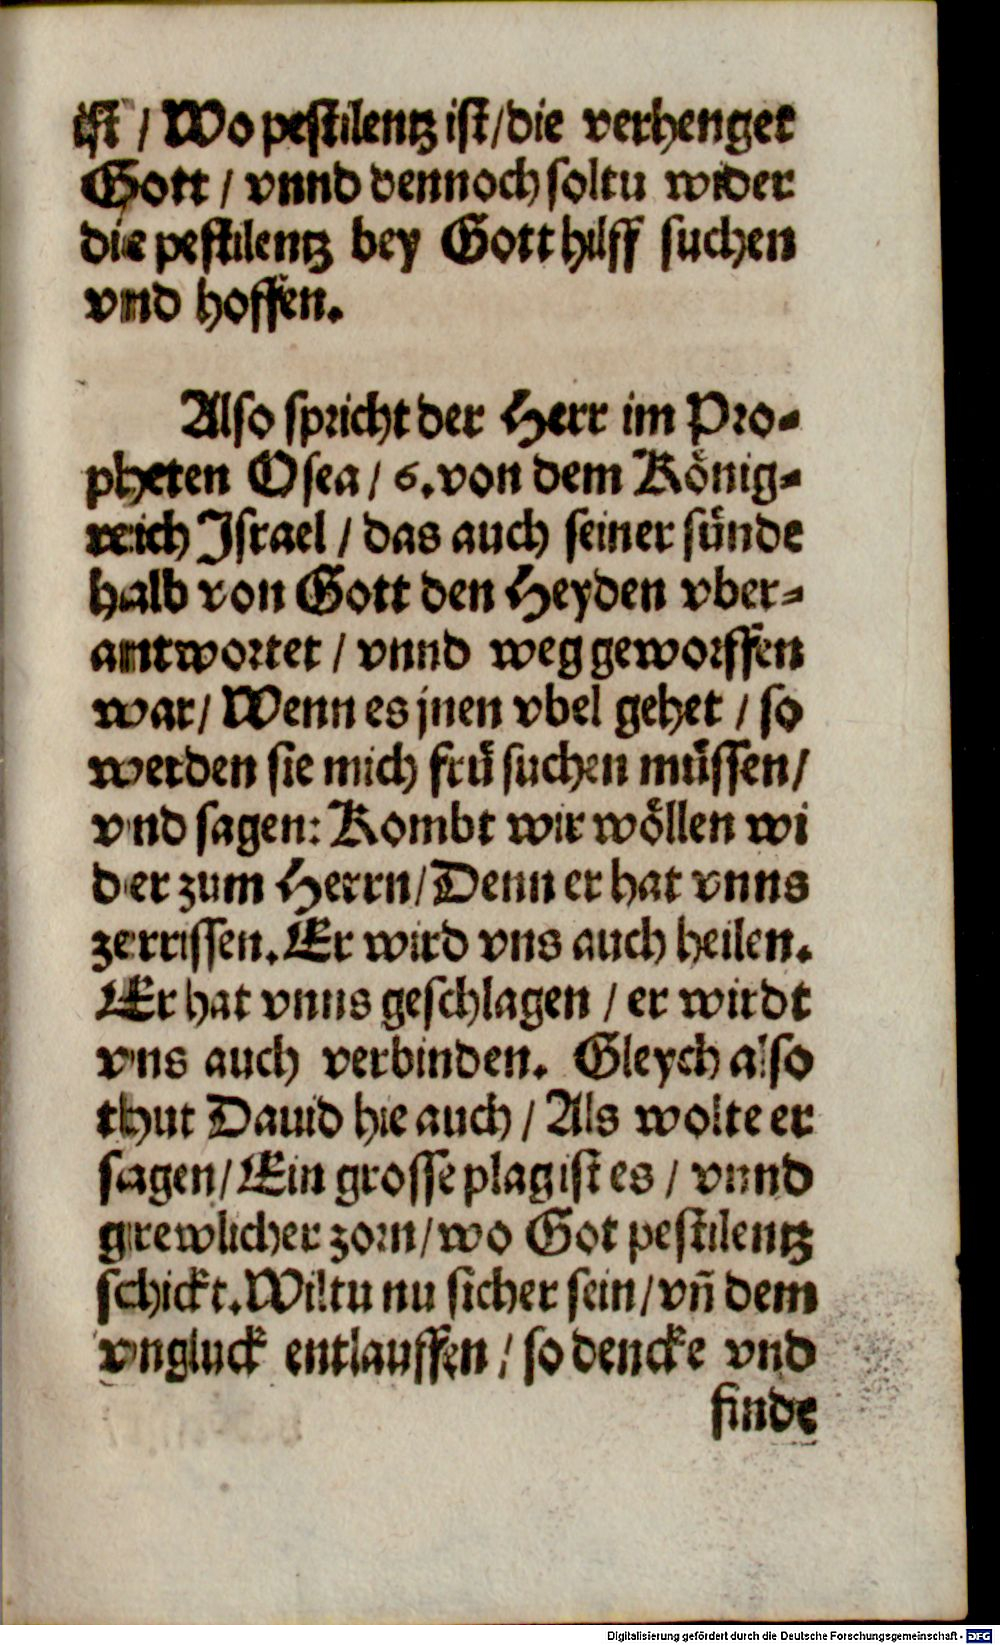 ist / Wo pestilentz ist / die verhenget
Gott / vnnd dennoch soltu wider
die pestilentz bey Gott hilff suchen
vnd hoffen.
Also spricht der Herr im Pro-
pheten Osea / 6. von dem König-
reich Israel / das auch seiner sünde
halb von Gott den Heyden vber-
antwortet / vnnd weg geworffen
war / Wenn es jnen vbel gehet / so
werden sie mich frü suchen müssen /
vnd sagen: Kombt wir wöllen wi
der zum Herrn / Denn er hat vnns
zerrissen. Er wird vns auch heilen.
Er hat vnns geschlagen / er wirdt
vns auch verbinden. Gleych also
thut Dauid hie auch / Als wolte er
sagen / Ein grosse plag ist es / vnnd
grewlicher zorn / wo Got pestilentz
schickt. Wiltu nu sicher sein / vn̄ dem
vngluck entlauffen / so dencke vnd
finde
Digitalisierung gefördert durch die Deutsche Forschungsgemeinschaft - DFG